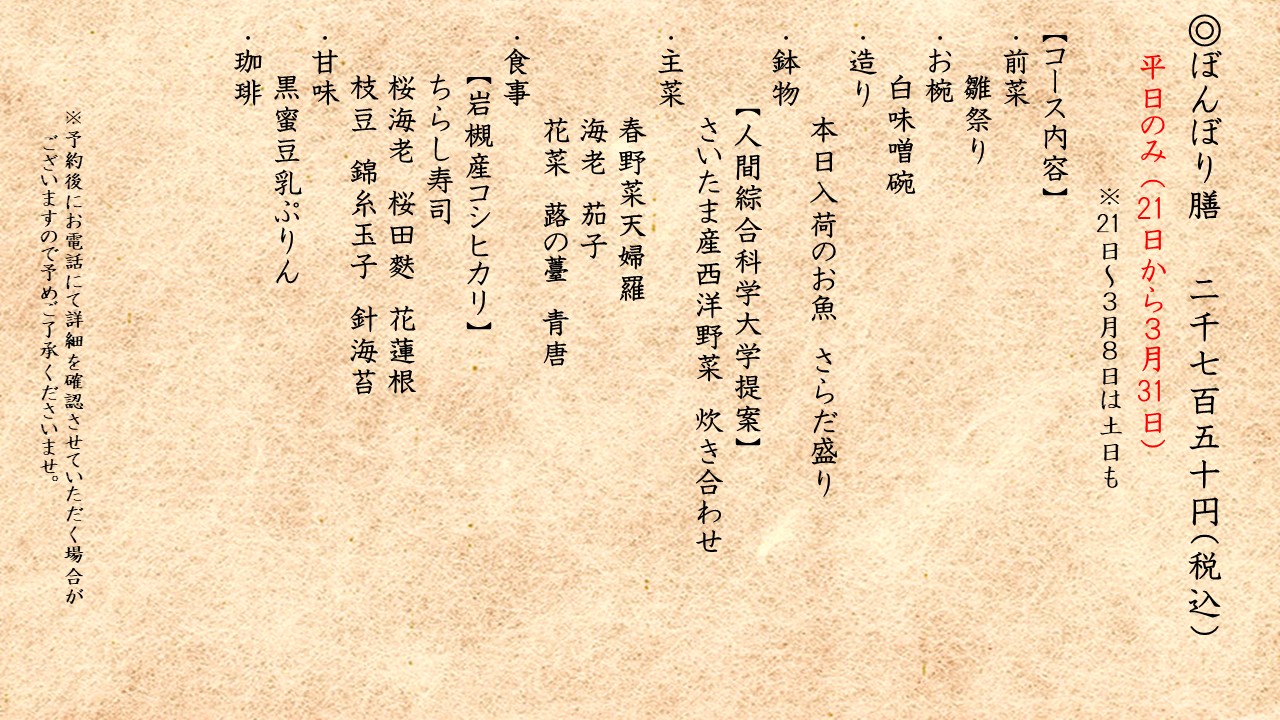 ◎ぼんぼり膳　二千七百五十円（税込）
平日のみ（21日から３月31日）
※21日～３月８日は土日も
【コース内容】
・前菜
雛祭り
・お椀
白味噌碗
・造り
本日入荷のお魚　さらだ盛り
・鉢物
【人間綜合科学大学提案】
さいたま産西洋野菜　炊き合わせ
・主菜
春野菜天婦羅
海老　茄子
花菜　蕗の薹　青唐
・食事
【岩槻産コシヒカリ】
ちらし寿司
桜海老　桜田麩　花蓮根
枝豆　錦糸玉子　針海苔
・甘味
黒蜜豆乳ぷりん
・珈琲
※予約後にお電話にて詳細を確認させていただく場合が
ございますので予めご了承くださいませ。